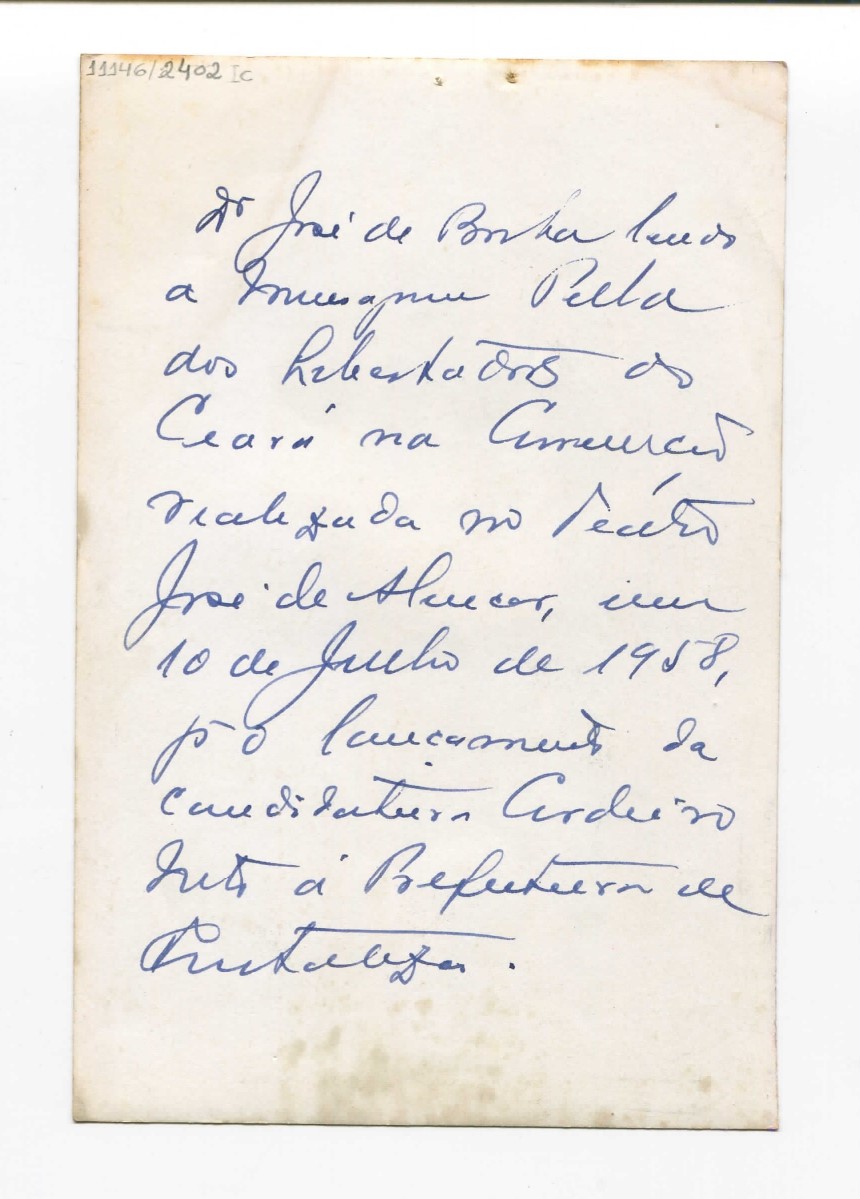 11146/2402 Ic
Dr José de Borba lendo
a mensagem Pella
dos Libertadores do
Ceará na Convenção
realizada no Teátro
José de Alencar, em
10 de Julho de 1958,
pº o lançamento da
candidatura Cordeiro
Neto á Prefeitura de
Fortaleza.